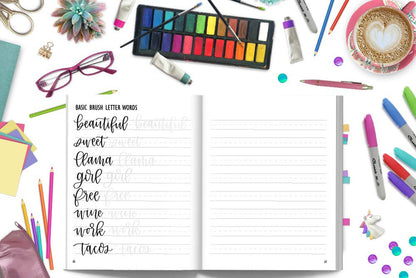 BASIC BRUSH LETTER WORDS
beautiful beautiful
sweet sweet
llama llama
girl girl
free free
wine wine
work work
tacos tacos
Sharpie